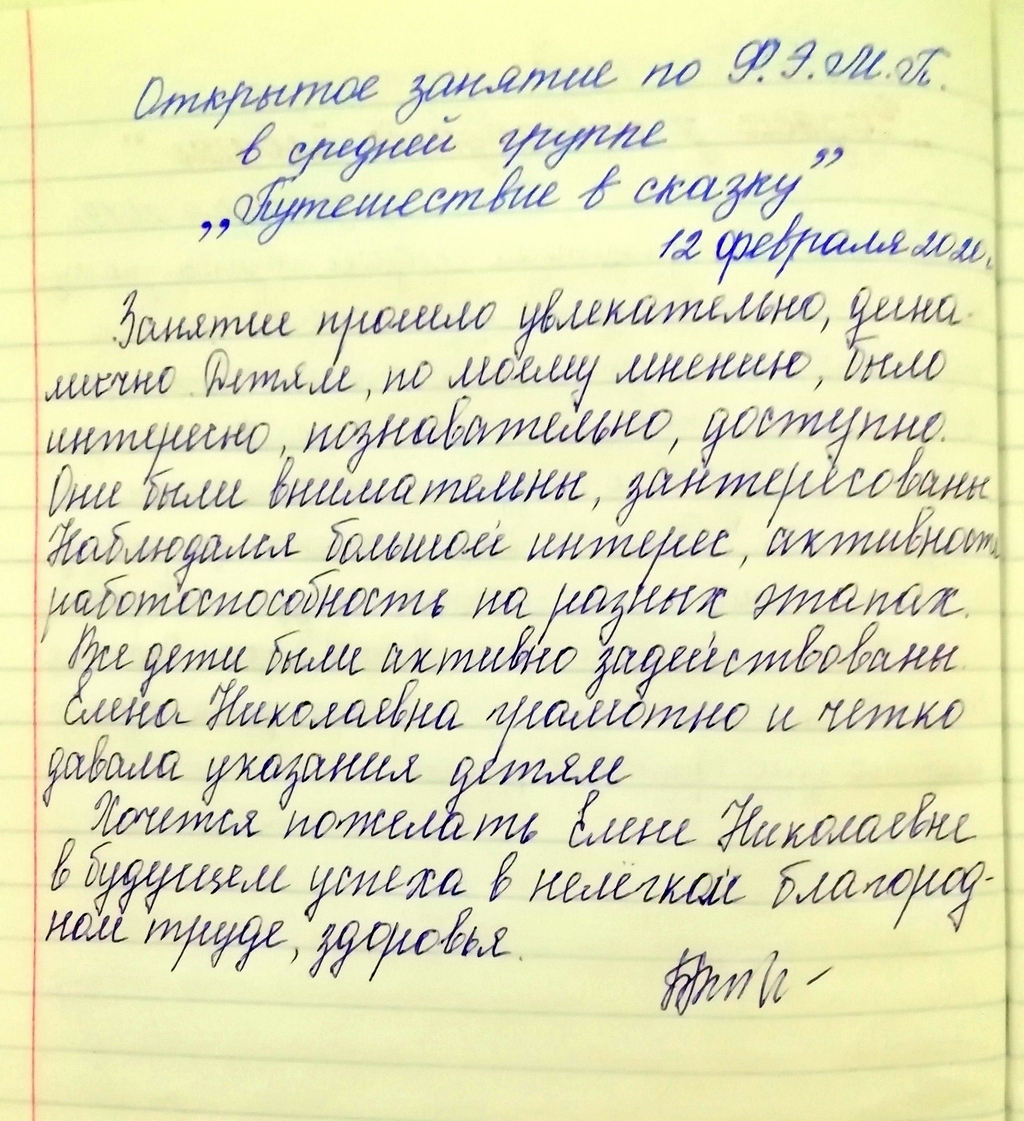 Открытое занятие по Ф.Э.М.П.
в средней группе
„Путешествие в сказку”
12 февраля 2020г.
Занятие прошло увлекательно, дина-
мично. Детям, по моему мнению, было
интересно, познавательно, доступно.
Они были внимательны, заинтересованы
Наблюдался большой интерес, активность
работоспособность на разных этапах.
Все дети были активно задействованы.
Елена Николаевна грамотно и четко
давала указания детям
Хочется пожелать Елене Николаевне
в будущем успеха в нелёгком благород-
ном труде, здоровья.